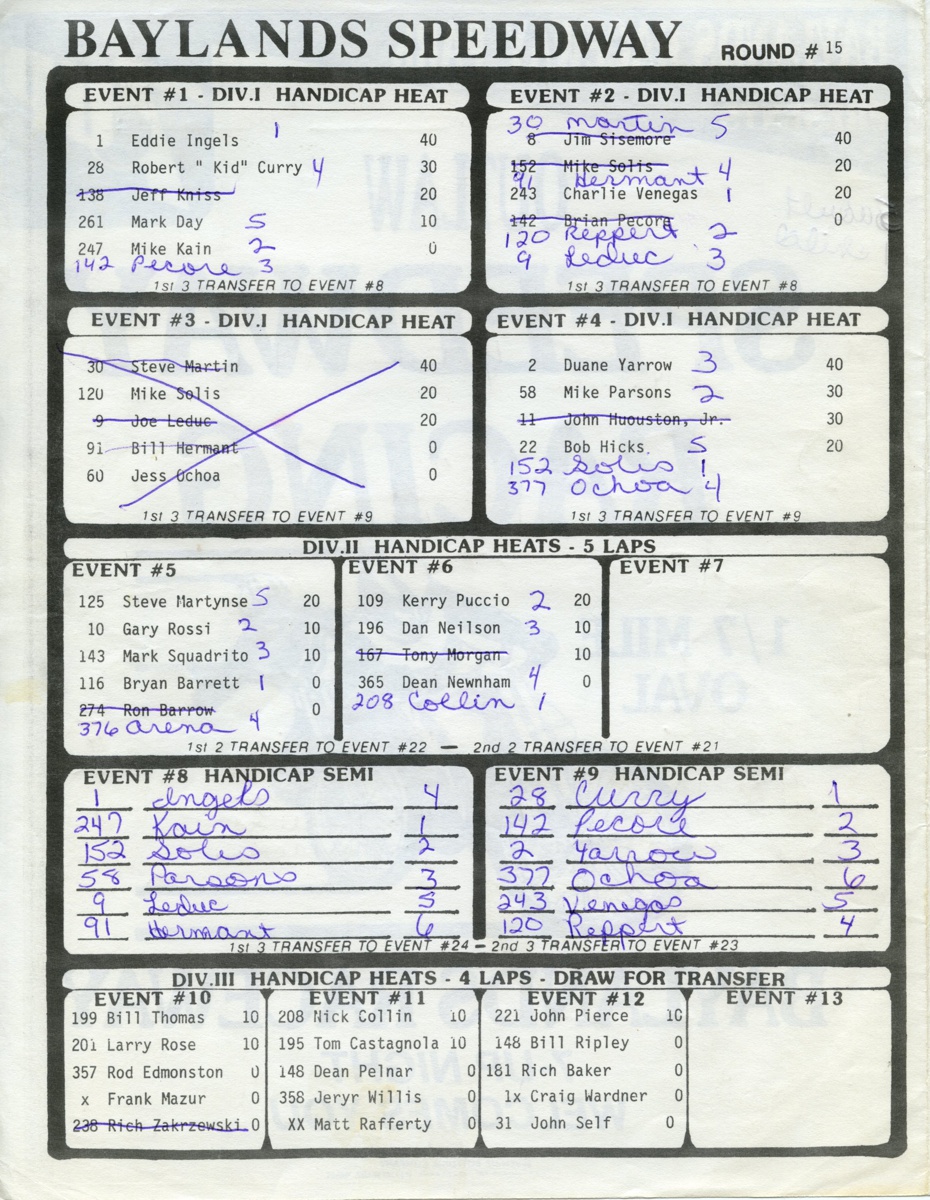 BAYLANDS SPEEDWAY ROUND # 15
EVENT #1 - DIV.I HANDICAP HEAT
1 Eddie Ingels 1 40
28 Robert " Kid" Curry 4 30
138 Jeff Kniss 20
261 Mark Day 5 10
247 Mike Kain 2 0
142 Pecore 3
1st 3 TRANSFER TO EVENT #8
EVENT #2 - DIV.I HANDICAP HEAT
30 martin 5
8 Jim Sisemore 40
152 Mike Solis 20
91 Hermant 4
243 Charlie Venegas 1 20
142 Brian Pecora 0
120 Reppert 2
9 Leduc 3
1st 3 TRANSFER TO EVENT #8
EVENT #3 - DIV.I HANDICAP HEAT
30 Steve Martin 40
120 Mike Solis 20
9 Joe Leduc 20
91 Bill Hermant 0
60 Jess Ochoa 0
1st 3 TRANSFER TO EVENT #9
EVENT #4 - DIV.I HANDICAP HEAT
2 Duane Yarrow 3 40
58 Mike Parsons 2 30
11 John Huouston, Jr. 30
22 Bob Hicks 5 20
152 Solis 1
377 Ochoa 4
1st 3 TRANSFER TO EVENT #9
DIV.II HANDICAP HEATS - 5 LAPS
EVENT #5
125 Steve Martynse 5 20
10 Gary Rossi 2 10
143 Mark Squadrito 3 10
116 Bryan Barrett 1 0
274 Ron Barrow 0
376 arena 4
EVENT #6
109 Kerry Puccio 2 20
196 Dan Neilson 3 10
167 Tony Morgan 10
365 Dean Newnham 4 0
208 Collin 1
EVENT #7
1st 2 TRANSFER TO EVENT #22 — 2nd 2 TRANSFER TO EVENT #21
EVENT #8 HANDICAP SEMI
1 Ingels 4
247 Kain 1
152 Solis 2
58 Parsons 3
9 Leduc 5
91 Hermant 6
EVENT #9 HANDICAP SEMI
28 Curry 1
142 Pecore 2
2 Yarrow 3
377 Ochoa 6
243 Venegas 5
120 Reppert 4
1st 3 TRANSFER TO EVENT #24 — 2nd 3 TRANSFER TO EVENT #23
DIV.III HANDICAP HEATS - 4 LAPS - DRAW FOR TRANSFER
EVENT #10
199 Bill Thomas 10
201 Larry Rose 10
357 Rod Edmonston 0
x Frank Mazur 0
238 Rich Zakrzewski 0
EVENT #11
208 Nick Collin 10
195 Tom Castagnola 10
148 Dean Pelnar 0
358 Jeryr Willis 0
XX Matt Rafferty 0
EVENT #12
221 John Pierce 10
148 Bill Ripley 0
181 Rich Baker 0
1x Craig Wardner 0
31 John Self 0
EVENT #13